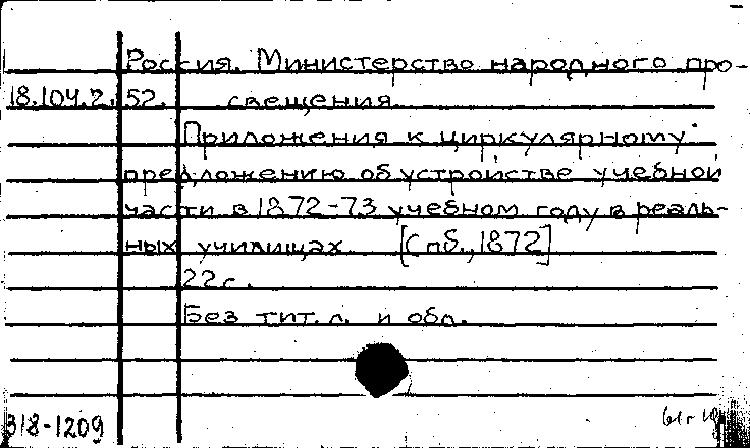 Россия. Министерство народного про-
18.104.2.52. свещения
Приложения к циркулярному
предложению об устройстве учебной
части в 1872-73 учебном году в реаль-
ных училищах [Спб., 1872]
22с.
Без тит.л. и обл.
318-1209